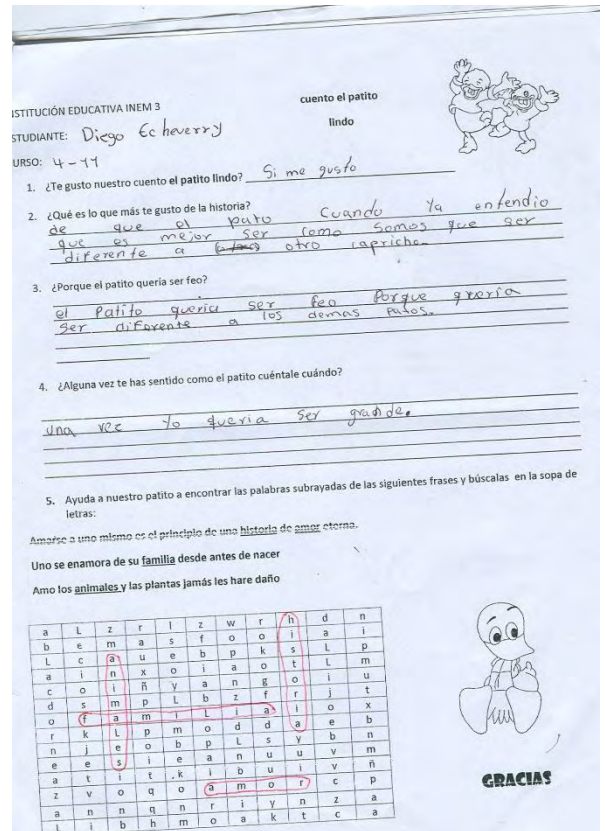 cuento el patito
lindo
STITUCIÓN EDUCATIVA INEM 3
STUDIANTE: Diego Echeverry
URSO: 4-11
1. ¿Te gusto nuestro cuento el patito lindo? Si me gusto
2. ¿Qué es lo que más te gusto de la historia?
de que el pato Cuando Ya entendio
que es mejor ser como somos que ser
diferente a otro capricho.
3. ¿Porque el patito quería ser feo?
el Patito queria ser feo Porque queria
ser diferente a los demas Patos.
4. ¿Alguna vez te has sentido como el patito cuéntale cuándo?
una vez Yo queria ser grande.
5. Ayuda a nuestro patito a encontrar las palabras subrayadas de las siguientes frases y búscalas en la sopa de
letras:
Amarse a uno mismo es el principio de una historia de amor eterna.
Uno se enamora de su familia desde antes de nacer
Amo los animales y las plantas jamás les hare daño
a L z r l z w r h d n
b e m a s f o o i a i
L c a u e b p k s L p
a i n x o i a o t L m
c o i ñ y a n g o i u
d s m p L b z f r j t
o f a m i L i a i o x
r k L p m o d d a e b
n j e o b p L s y b n
e e s i e a n u u v m
a t i t k i b u i v ñ
z v o q o a m o r c p
a n n q n r i y n z a
L i b h m o a k t c a
GRACIAS